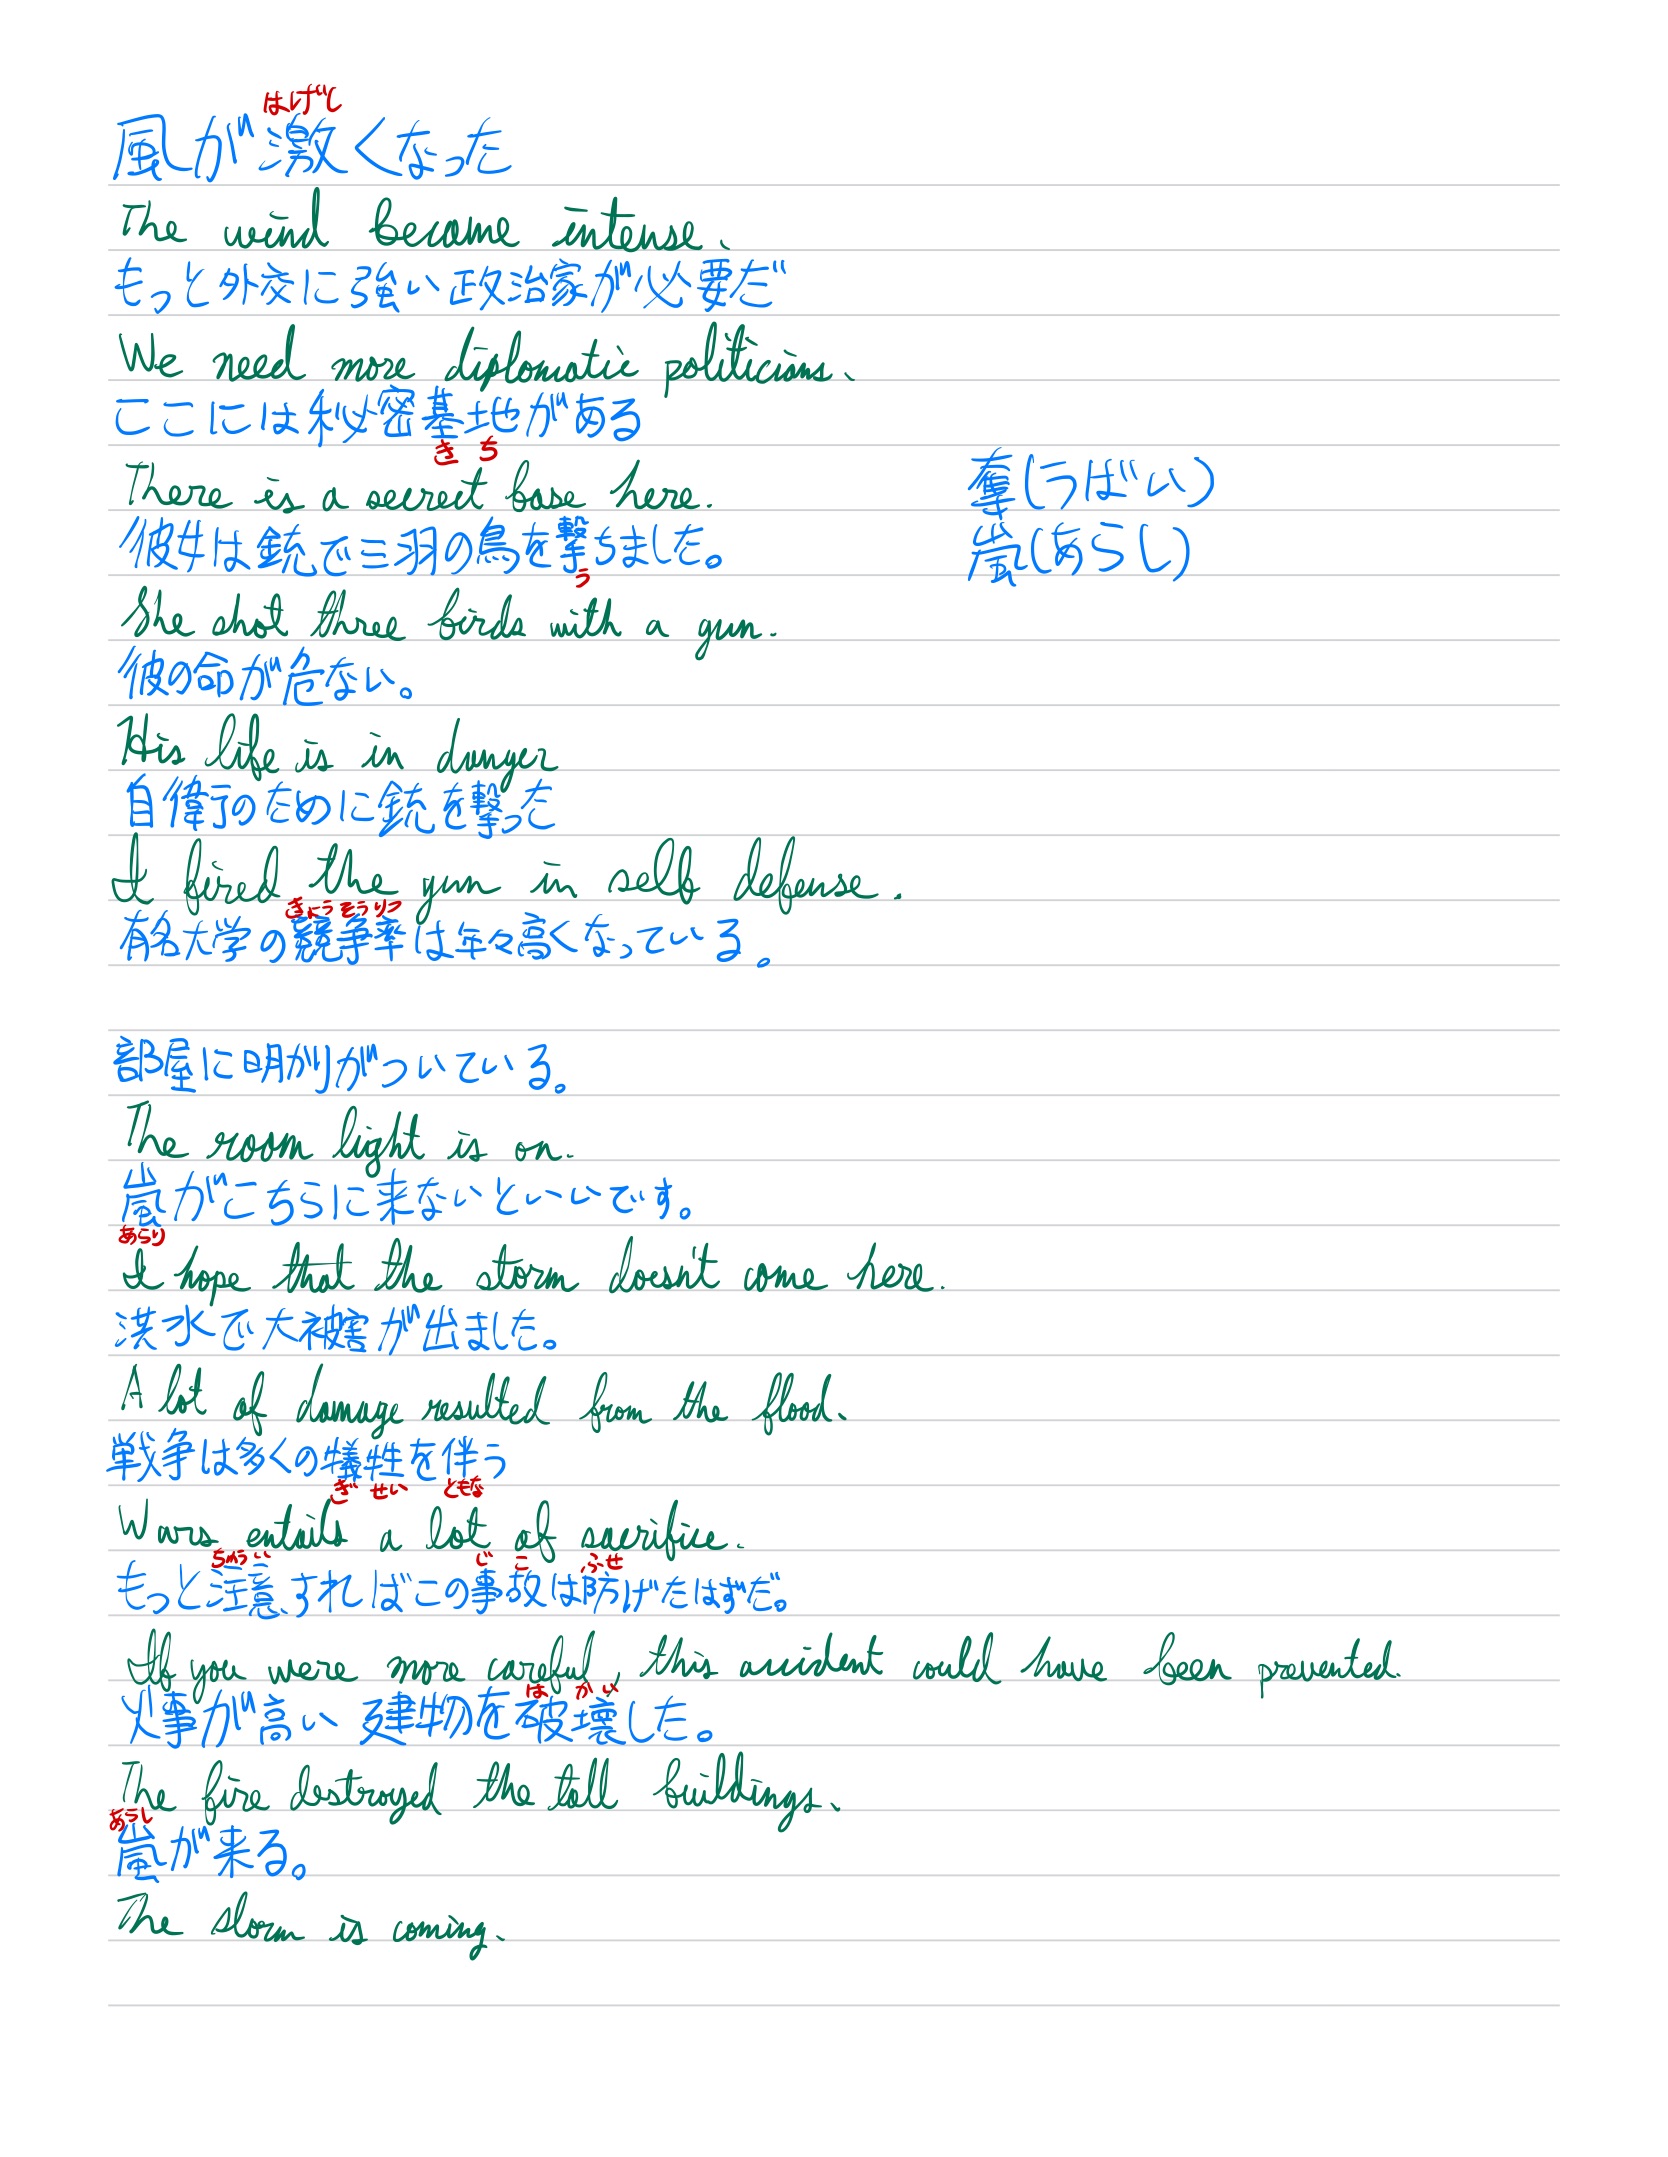 はげし
風が激くなった
The wind became intense.
もっと外交に強い政治家が必要だ
We need more diplomatic politicians.
ここには秘密基地がある
きち
There is a secret base here.
奪(うばい)
彼女は銃で三羽の鳥を撃ちました。
嵐(あらし)
う
She shot three birds with a gun.
彼の命が危ない。
His life is in danger
自衛のために銃を撃った
I fired the gun in self defense.
きょうそうりつ
有名大学の競争率は年々高くなっている。
部屋に明かりがついている。
The room light is on.
嵐がこちらに来ないといいです。
あらり
I hope that the storm doesn't come here.
洪水で大被害が出ました。
A lot of damage resulted from the flood.
戦争は多くの犠牲を伴う
ぎせい ともな
Wars entails a lot of sacrifice.
ちゅうい じこ ふせ
もっと注意すればこの事故は防げたはずだ。
If you were more careful, this accident could have been prevented.
はかい
火事が高い建物を破壊した。
The fire destroyed the tall buildings.
あらし
嵐が来る。
The storm is coming.